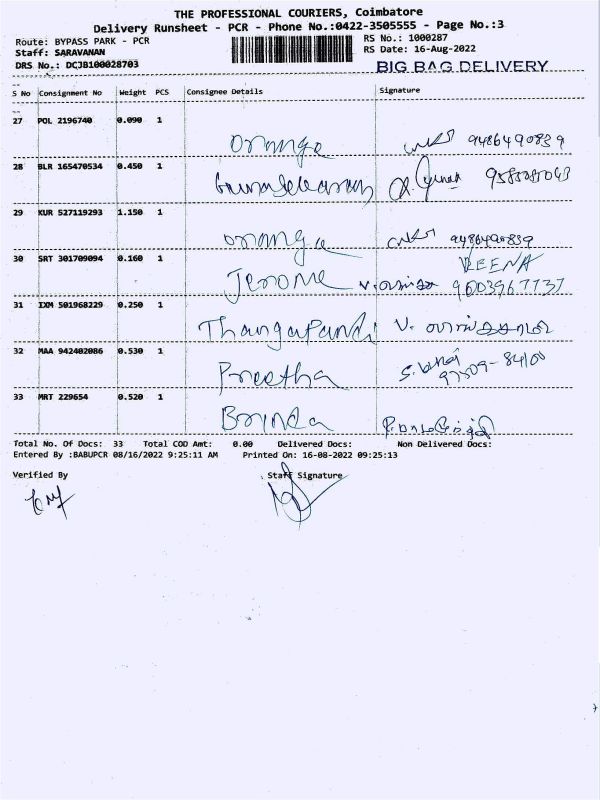 THE PROFESSIONAL COURIERS, Coimbatore
Delivery Runsheet - PCR - Phone No.:0422-3505555 - Page No.:3
Route: BYPASS PARK - PCR
RS No.: 1000287
Staff: SARAVANAN
RS Date: 16-Aug-2022
DRS No.: DCJB100028703
BIG BAG DELIVERY
S No Consignment No Weight PCS Consignee Details Signature
27 POL 2196740 0.090 1
Orange 9486490839
28 BLR 165470534 0.450 1
Gunasekaran
29 KUR 527119293 1.150 1
orange 9486490839
30 SRT 301709094 0.160 1
VEENA
Jerome 9603967737
31 IXM 501968229 0.250 1
Thangapandi
32 MAA 942402086 0.530 1
Preetha 97509-84100
33 MRT 229654 0.520 1
Brinda
Total No. Of Docs: 33 Total COD Amt: 0.00 Delivered Docs: Non Delivered Docs:
Entered By :BABUPCR 08/16/2022 9:25:11 AM Printed On: 16-08-2022 09:25:13
Verified By Staff Signature